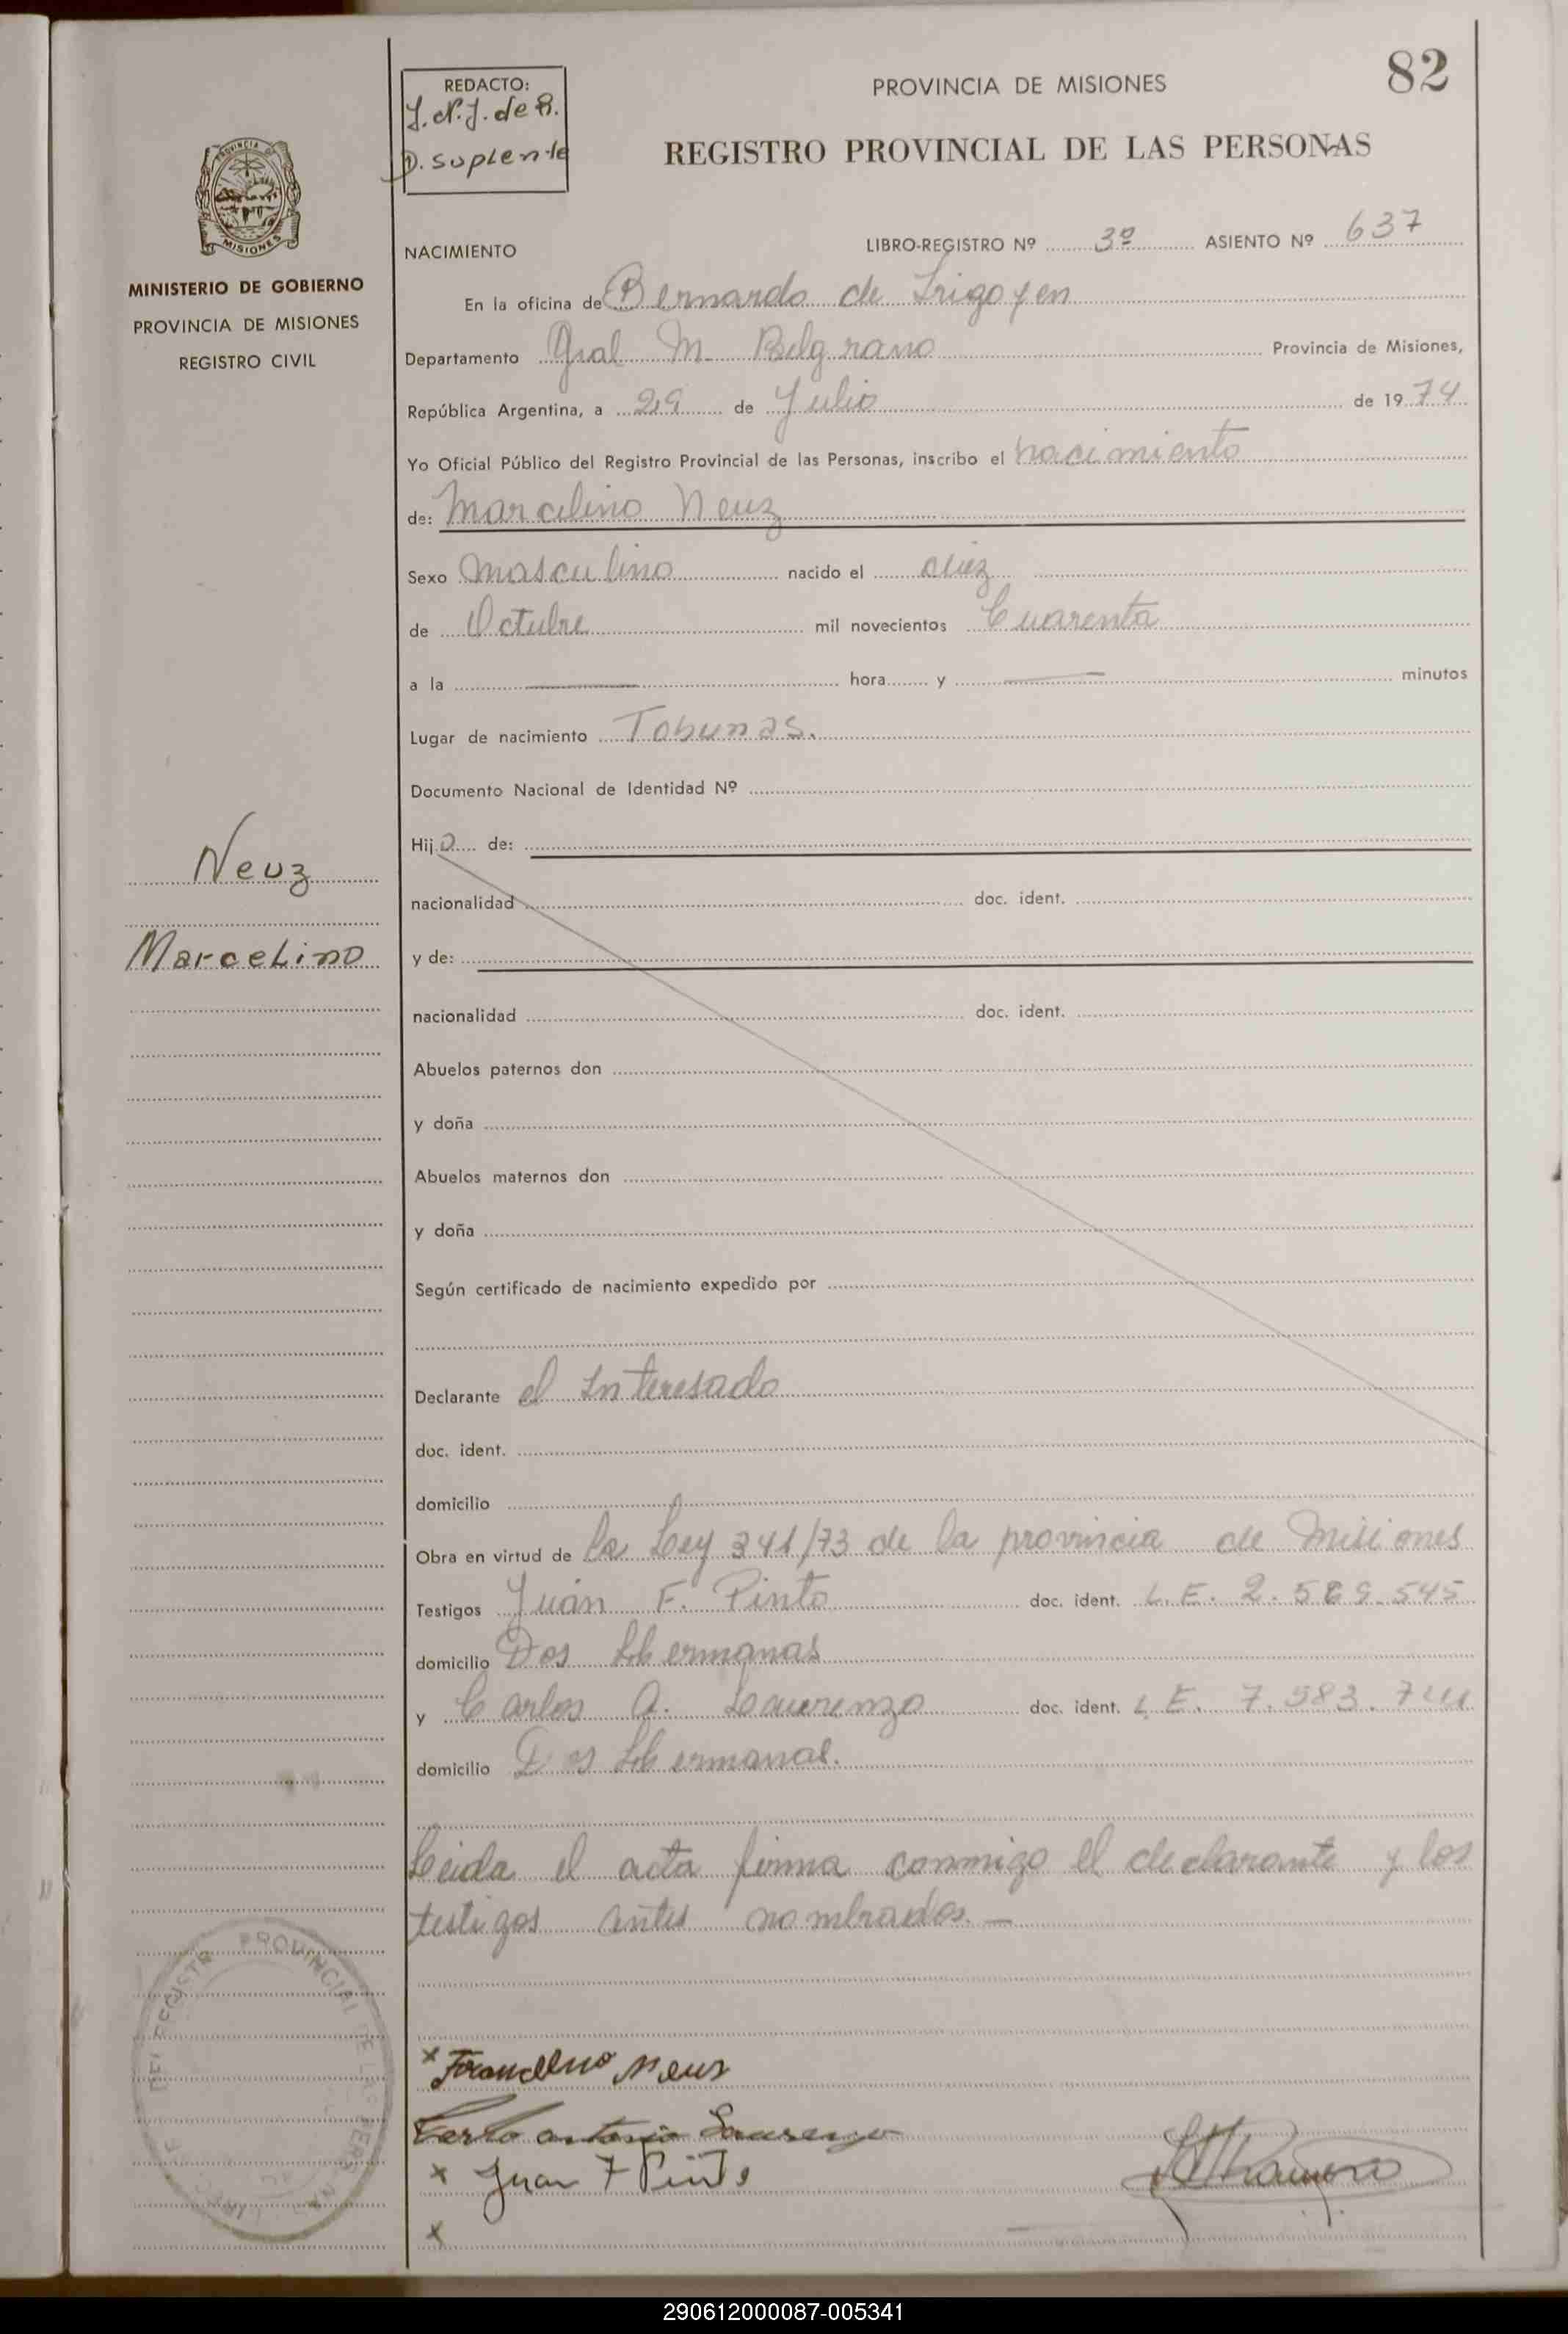 82
REDACTO:
J. N. J. de R.
D. suplente
PROVINCIA DE MISIONES
REGISTRO PROVINCIAL DE LAS PERSONAS
PROVINCIA DE
MISIONES
MINISTERIO DE GOBIERNO
PROVINCIA DE MISIONES
REGISTRO CIVIL
NACIMIENTO LIBRO-REGISTRO Nº 3º ASIENTO Nº 637
En la oficina de Bernardo de Irigoyen
Departamento Gral M. Belgrano Provincia de Misiones,
República Argentina, a 29 de Julio de 1974
Yo Oficial Público del Registro Provincial de las Personas, inscribo el nacimiento
de: Marcelino Neuz
Sexo Masculino nacido el diez
de Octubre mil novecientos Cuarenta
a la hora y minutos
Lugar de nacimiento Tobunas.
Documento Nacional de Identidad Nº
Hijo de:
Neuz
nacionalidad doc. ident.
Marcelino
y de:
nacionalidad doc. ident.
Abuelos paternos don
y doña
Abuelos maternos don
y doña
Según certificado de nacimiento expedido por
Declarante el Interesado
doc. ident.
domicilio
Obra en virtud de la Ley 341/73 de la provincia de Misiones
Testigos Juan F. Pinto doc. ident. L.E. 2.569.545
domicilio Dos Hermanas
y Carlos A. Laurenzo doc. ident. L.E. 7.583.
domicilio Dos Hermanas.
Leida el acta firma conmigo el declarante y los
testigos antes nombrados. —
REGISTRO PROVINCIAL DE LAS PERSONAS
x Neuz
Carlo antonio Laurenzo
x Juan F Pinto
x
290612000087-005341